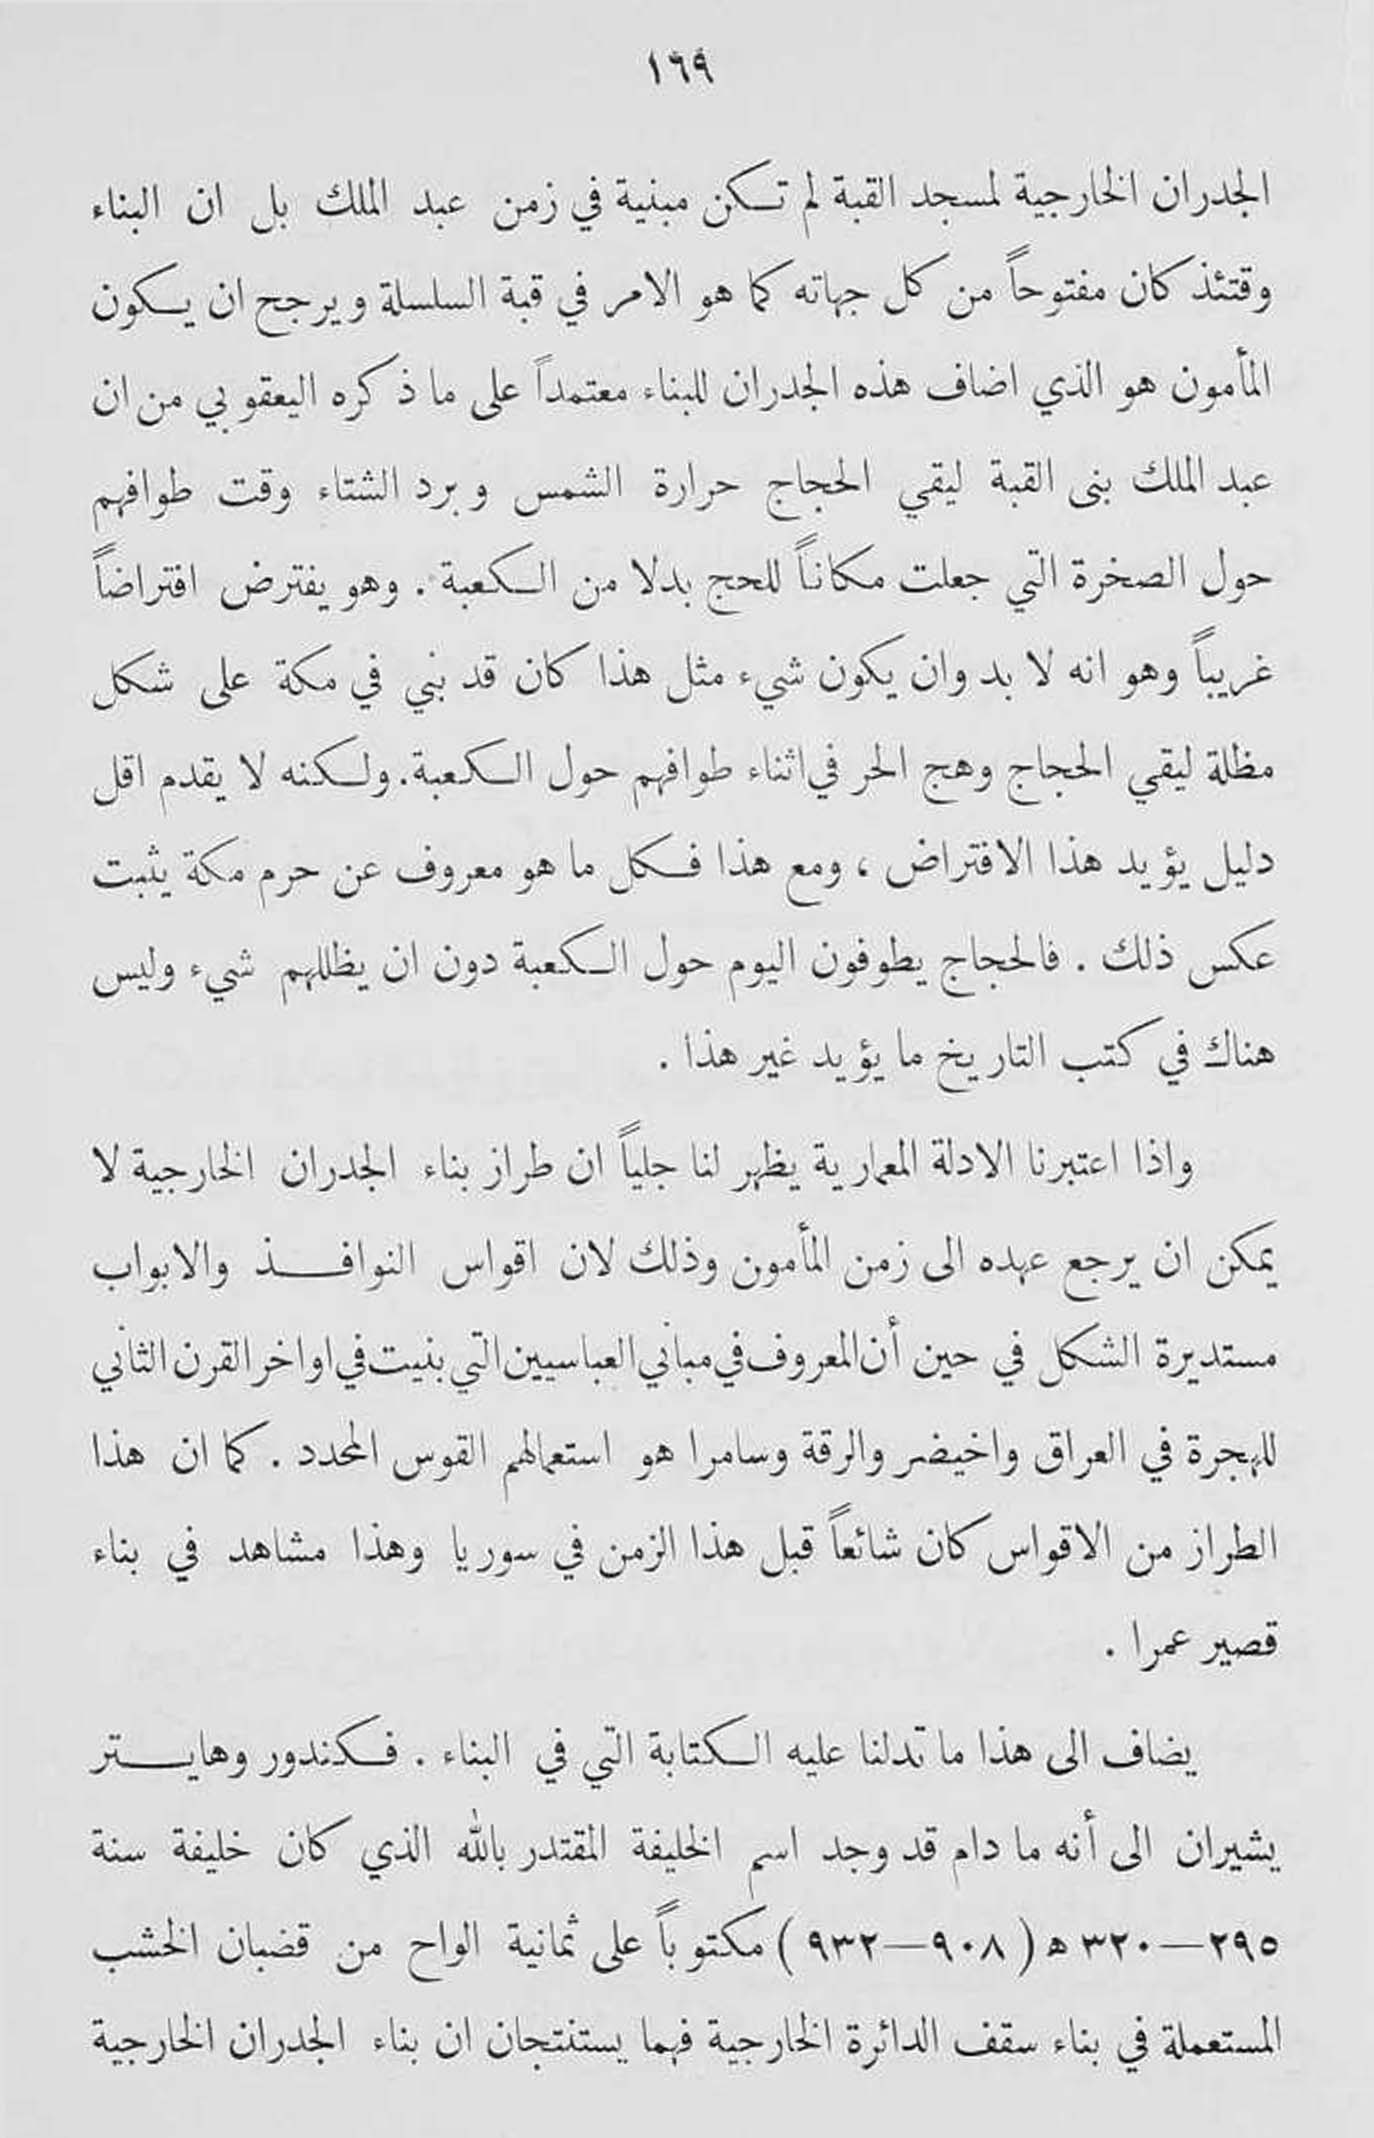 ١٦٩
الجدران الخارجية لمسجد القبة لم تكن مبنية في زمن عبد الملك بل ان البناء
وقتئذ كان مفتوحاً من كل جهاته كما هو الامر في قبة السلسلة ويرجح ان يكون
المأمون هو الذي اضاف هذه الجدران للبناء معتمداً على ما ذكره اليعقوبي من ان
عبد الملك بنى القبة ليقي الحجاج حرارة الشمس وبرد الشتاء وقت طوافهم
حول الصخرة التي جعلت مكاناً للحج بدلا من الكعبة . وهو يفترض افتراضاً
غريباً وهو انه لا بد وان يكون شيء مثل هذا كان قد بني في مكة على شكل
مظلة ليقي الحجاج وهج الحر في اثناء طوافهم حول الكعبة. ولكنه لا يقدم اقل
دليل يؤيد هذا الافتراض ، ومع هذا فكل ما هو معروف عن حرم مكة يثبت
عكس ذلك . فالحجاج يطوفون اليوم حول الكعبة دون ان يظللهم شيء وليس
هناك في كتب التاريخ ما يؤيد غير هذا .
واذا اعتبرنا الادلة المعمارية يظهر لنا جلياً ان طراز بناء الجدران الخارجية لا
يمكن ان يرجع عهده الى زمن المأمون وذلك لان اقواس النوافذ والابواب
مستديرة الشكل في حين أن المعروف في مباني العباسيين التي بنيت في اواخر القرن الثاني
للهجرة في العراق واخيضر والرقة وسامرا هو استعمالهم القوس المحدد . كما ان هذا
الطراز من الاقواس كان شائعاً قبل هذا الزمن في سوريا وهذا مشاهد في بناء
قصير عمرا .
يضاف الى هذا ما تدلنا عليه الكتابة التي في البناء . فكندور وهايتر
يشيران الى أنه ما دام قد وجد اسم الخليفة المقتدر بالله الذي كان خليفة سنة
٢٩٥—٣٢٠ ه (٩٠٨—٩٣٢) مكتوباً على ثمانية الواح من قضبان الخشب
المستعملة في بناء سقف الدائرة الخارجية فهما يستنتجان ان بناء الجدران الخارجية